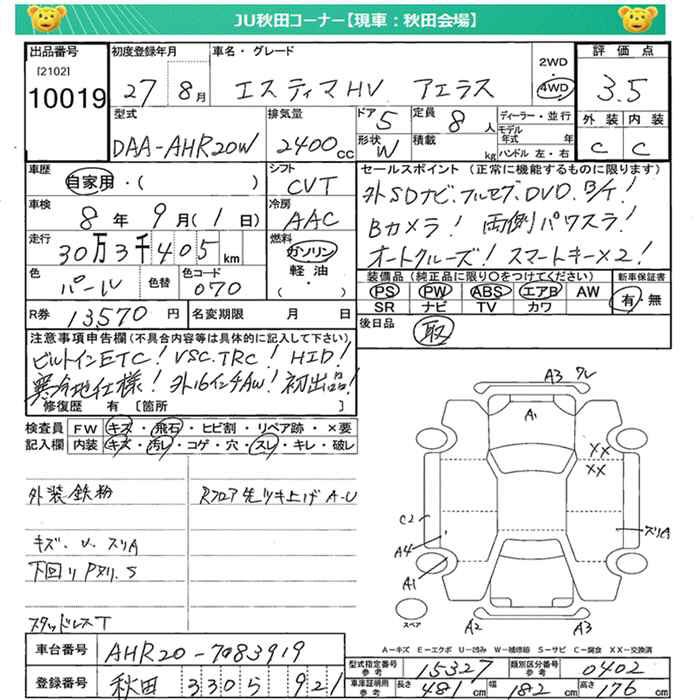 JU秋田コーナー【現車：秋田会場】
出品番号 初度登録年月 車名・グレード 2WD 評価点
[2102]
10019 27 8月 エスティマHV アエラス 4WD 3.5
型式 排気量 ドア 定員 ディーラー・並行 外装 内装
5 8人 モデル年式 年
DAA-AHR20W 2400cc 形状 W 積載 kg ハンドル 左・右 C C
車歴 シフト セールスポイント（正常に機能するものに限ります）
自家用・( ) CVT 外SDナビ、フルセグ、DVD、B/T!
車検 冷房
8年 9月(1日) AAC Bカメラ! 両側パワスラ!
走行 燃料
30万3千405km ガソリン オートクルーズ! スマートキー×2!
軽油
・( )
色 色替 色コード 装備品（純正品に限り〇をつけてください） 新車保証書
パール 070 PS PW ABS エアB AW 有・無
SR ナビ TV カワ
R券 13,570円 名変期限 月 日 後日品 取
注意事項申告欄(不具合内容等は具体的に記入して下さい)
ビルトインETC! VSC.TRC! HID!
寒冷地仕様! 外16インチAW! 初出品!
修復歴 有 [箇所 ]
検査員 FW キズ・飛石・ヒビ割・リペア跡・×要
記入欄 内装 キズ・汚レ・コゲ・穴・スレ・キレ・破レ
外装鉄粉 Rフロア先ツキ上げ A-U
キズ.U.スリA
下回りPヌリ.S
スタッドレスT
A3 ワレ
A1
XX
XX
C2
スリA
A4
A1
スペア
A2 A3
A-キズ E-エクボ U-凹み W-補修跡 S-サビ C-腐食 XX-交換済
車台番号 AHR20-7083919
型式指定番号 参考 15327 類別区分番号 参考 0402
登録番号 秋田 330 ら 921
車庫証明用 参考 長さ 481cm 幅 182cm 高さ 176cm